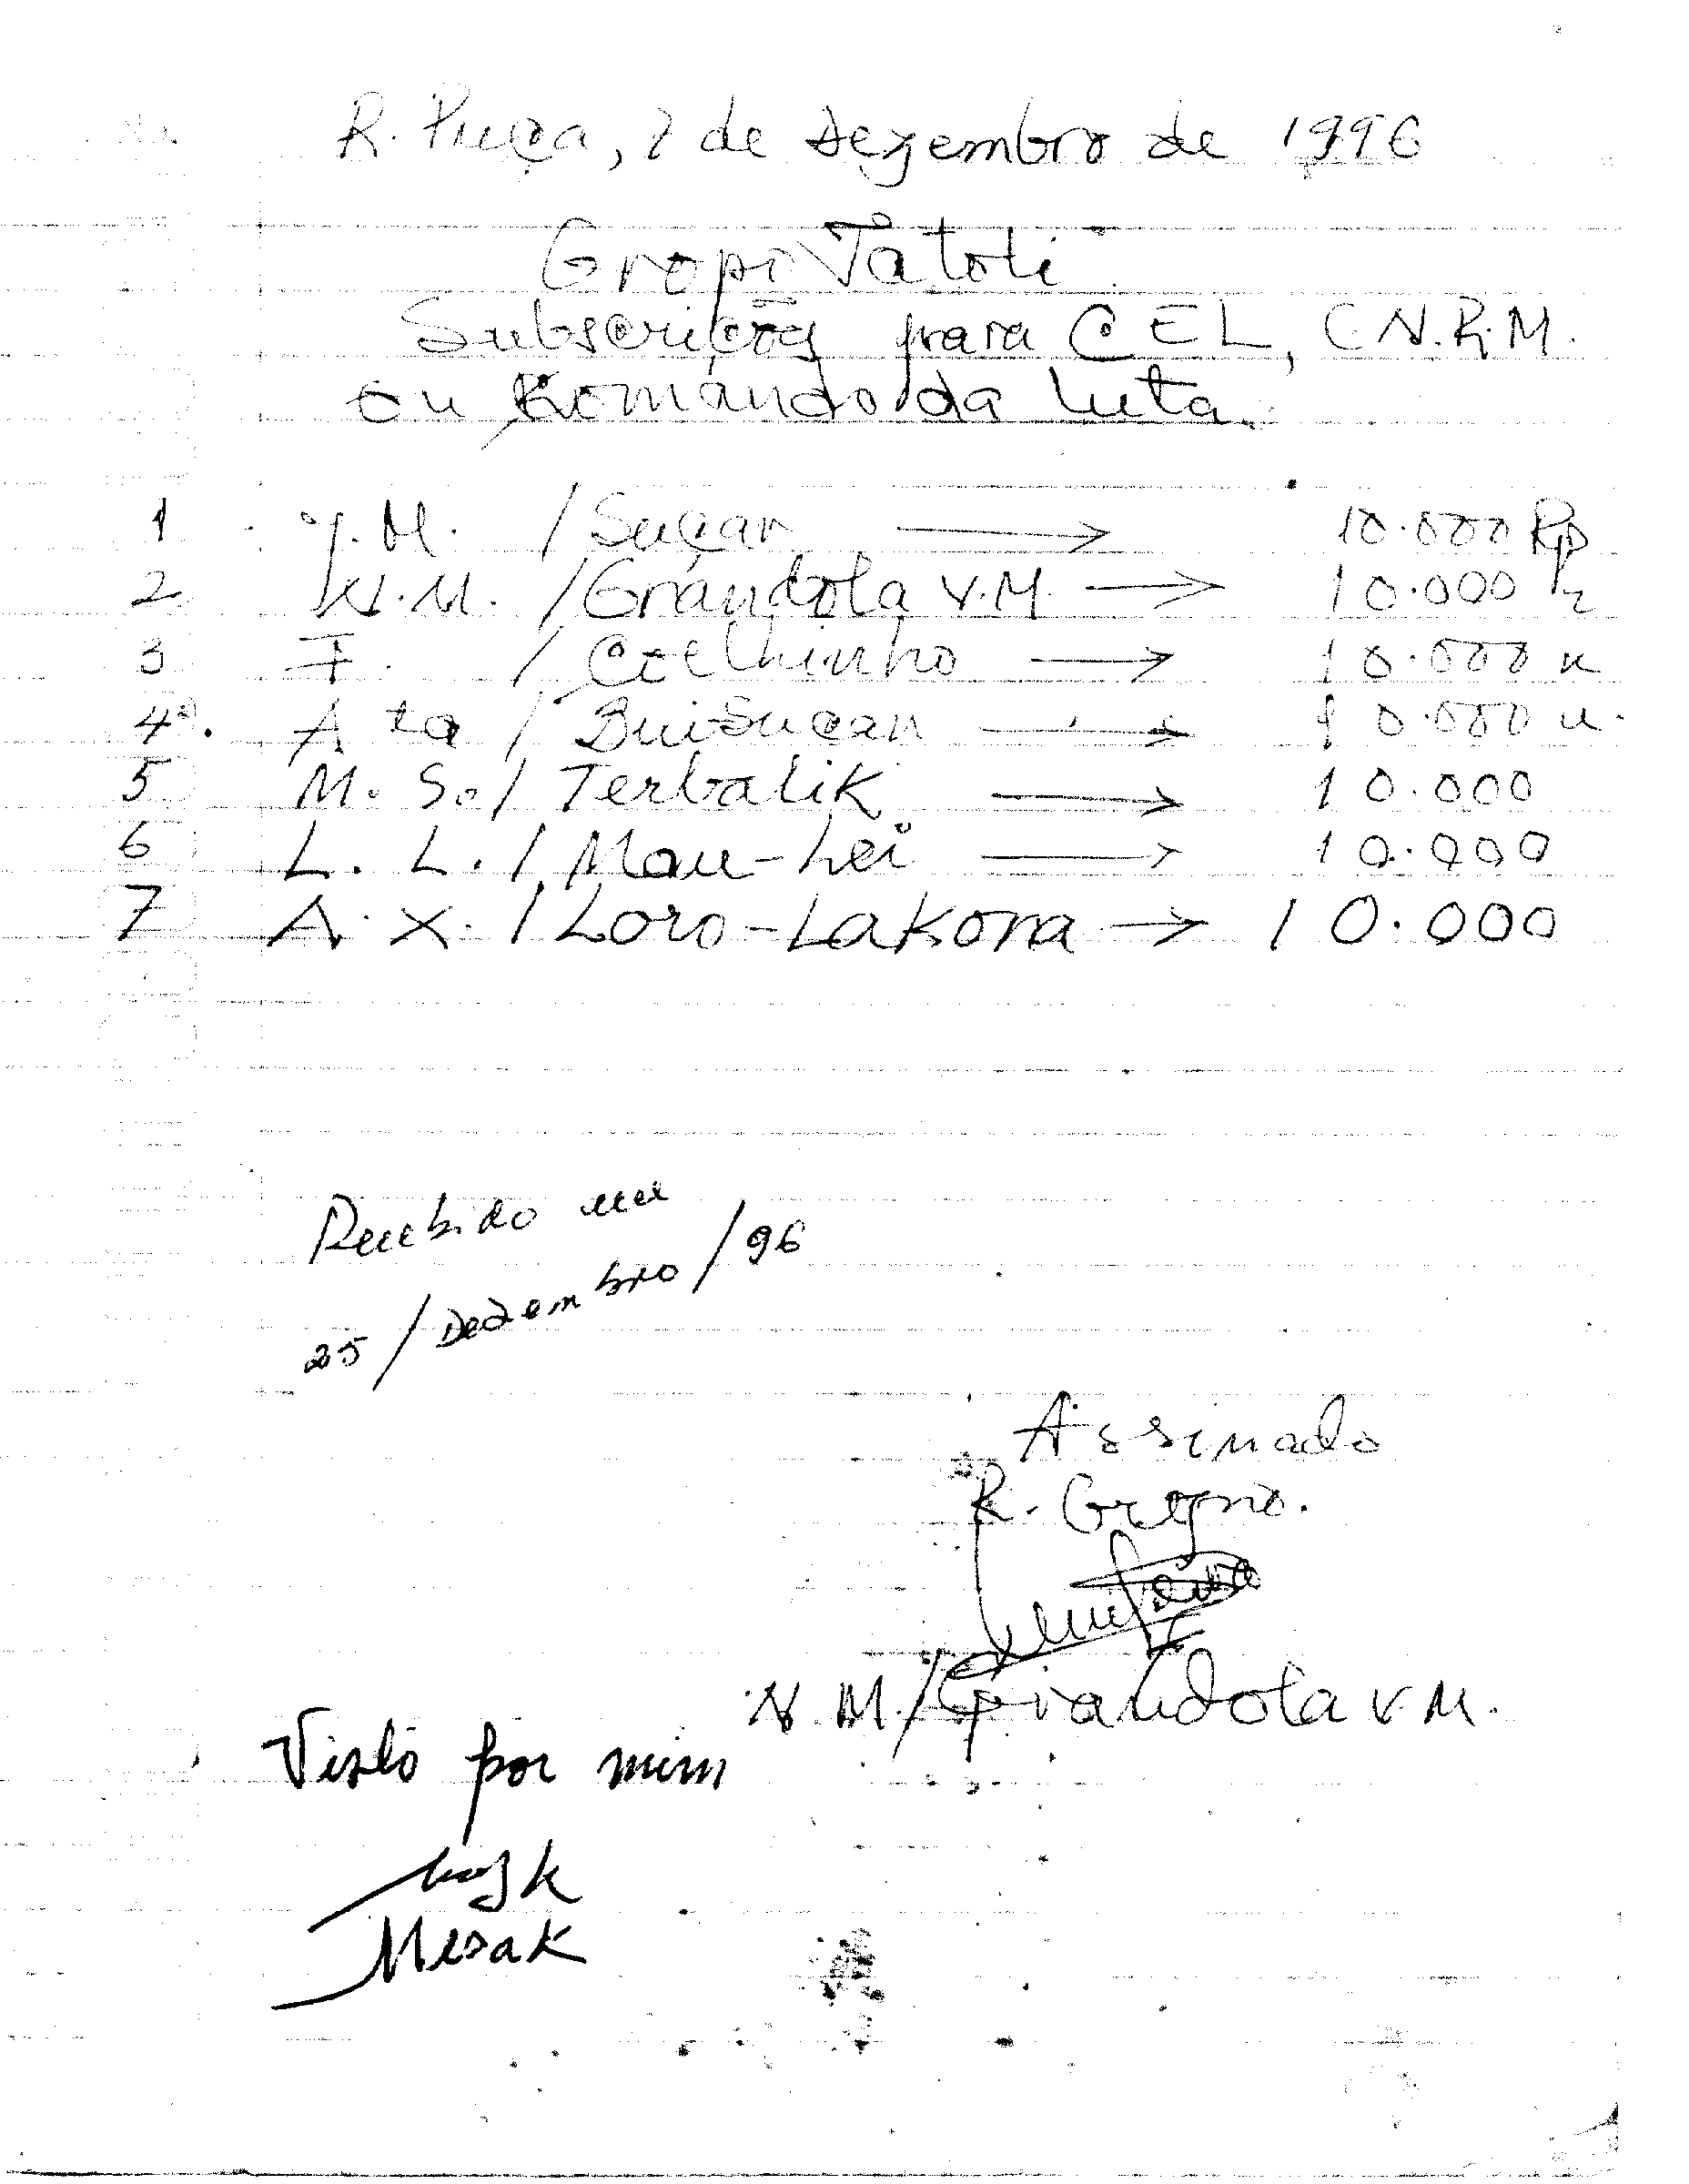 R. Pueça, 7 de Dezembro de 1996
Gropo Tatoli
Subscrições para CEL, C.N.R.M.
ou Komando da Luta.
1 Y.M. / Suçar → 10.000 Rp
2 N.M. / Grândola V.M. → 10.000
3 F. / Coelhinho → 10.000 "
4º. A ta / Buisucan → 10.000 "
5 M. S. / Terbalik → 10.000
6 L. L. / Mau-Lei → 10.000
7 A. X. / Loro-Lakora → 10.000
Recebido em
25 / Dezembro / 96
Assinado
N. M. / Grandola V. M.
Visto por mim
Mesak